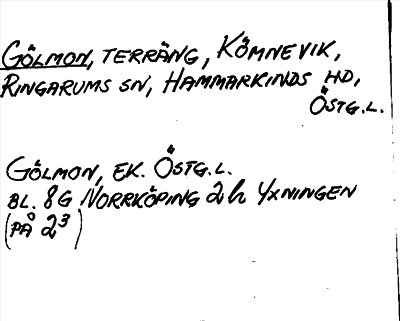 GÖLMON, TERRÄNG, KÖMNEVIK,
RINGARUMS SN, HAMMARKINDS HD,
ÖSTG.L.
GÖLMON, EK. ÖSTG.L.
BL. 8G NORRKÖPING 2h YXNINGEN
(PÅ 2³)